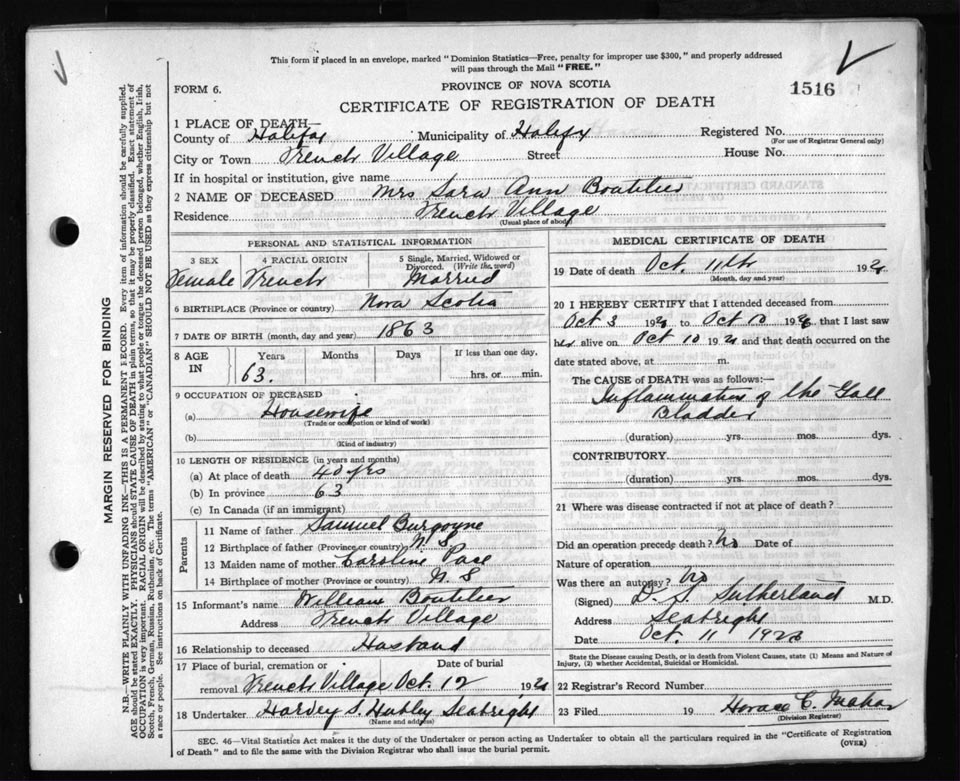 This form if placed in an envelope, marked "Dominion Statistics—Free, penalty for improper use $300," and properly addressed
will pass through the Mail "FREE."
FORM 6.
PROVINCE OF NOVA SCOTIA
CERTIFICATE OF REGISTRATION OF DEATH
1516
1 PLACE OF DEATH—
County of Halifax Municipality of Halifax Registered No.
(For use of Registrar General only)
City or Town French Village Street House No.
If in hospital or institution, give name
2 NAME OF DECEASED Mrs Sara Ann Boutilier
Residence French Village
(Usual place of abode)
PERSONAL AND STATISTICAL INFORMATION
3 SEX Female
4 RACIAL ORIGIN French
5 Single, Married, Widowed or
Divorced. (Write the word)
Married
6 BIRTHPLACE (Province or country) Nova Scotia
7 DATE OF BIRTH (month, day and year) 1863
8 AGE IN Years Months Days If less than one day,
63. hrs. or min.
9 OCCUPATION OF DECEASED
(a) Housewife
(Trade or occupation or kind of work)
(b)
(Kind of industry)
10 LENGTH OF RESIDENCE (in years and months)
(a) At place of death 40 yrs
(b) In province 63
(c) In Canada (if an immigrant)
Parents
11 Name of father Samuel Burgoyne
12 Birthplace of father (Province or country) N S
13 Maiden name of mother Caroline
14 Birthplace of mother (Province or country) N. S
15 Informant's name William Boutilier
Address French Village
16 Relationship to deceased Husband
17 Place of burial, cremation or Date of burial
removal French Village Oct. 12 192
18 Undertaker Harvey S. Hubley Seabright
(Name and address)
MEDICAL CERTIFICATE OF DEATH
19 Date of death Oct. 11th 192
(Month, day and year)
20 I HEREBY CERTIFY that I attended deceased from
Oct 3 192 to Oct 10 192 that I last saw
her alive on Oct 10 192 and that death occurred on the
date stated above, at m.
The CAUSE of DEATH was as follows:—
Inflammation of the Gall
Bladder
(duration) yrs. mos. dys.
CONTRIBUTORY.
(duration) yrs. mos. dys.
21 Where was disease contracted if not at place of death?
Did an operation precede death? No Date of
Nature of operation
Was there an autopsy? No
(Signed) D. S. Sutherland M.D.
Address Seabright
Date Oct. 11 192
State the Disease causing Death, or in death from Violent Causes, state (1) Means and Nature of
Injury, (2) whether Accidental, Suicidal or Homicidal.
22 Registrar's Record Number
23 Filed 19 Horace C.
(Division Registrar)
SEC. 46—Vital Statistics Act makes it the duty of the Undertaker or person acting as Undertaker to obtain all the particulars required in the "Certificate of Registration
of Death" and to file the same with the Division Registrar who shall issue the burial permit.
(OVER)
MARGIN RESERVED FOR BINDING
N.B.—WRITE PLAINLY WITH UNFADING INK—THIS IS A PERMANENT RECORD. Every item of information should be carefully supplied.
AGE should be stated EXACTLY. PHYSICIANS should STATE CAUSE OF DEATH in plain terms, so that it may be properly classified. Exact statement of
OCCUPATION is very important. RACIAL ORIGIN will be described by stating to what people or tongue the deceased person belonged, whether English, Irish,
Scotch, French, German, Russian, Ruthenian, etc. The terms "AMERICAN" or "CANADIAN" SHOULD NOT BE USED as they express citizenship but not
a race or people. See instructions on back of Certificate.